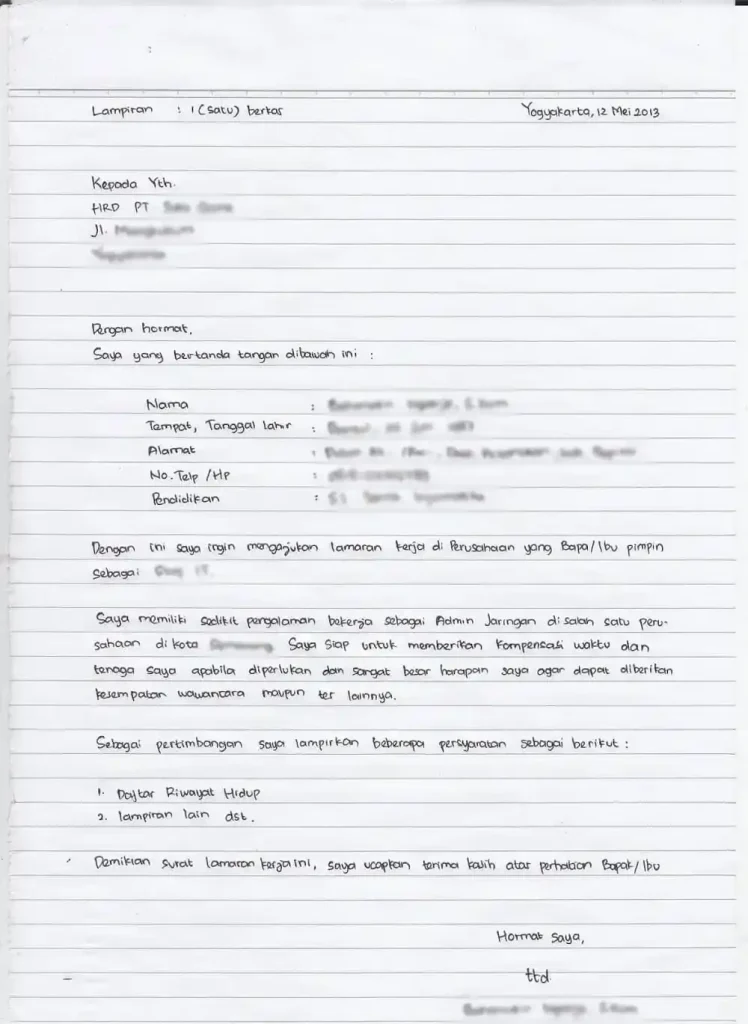 Lampiran : 1 (satu) berkas Yogyakarta, 12 Mei 2013
Kepada Yth.
HRD PT
Jl.
Dengan hormat,
Saya yang bertanda tangan dibawah ini :
Nama :
Tempat, Tanggal lahir :
Alamat :
No. Telp / HP :
Pendidikan :
Dengan ini saya ingin mengajukan lamaran kerja di Perusahaan yang Bapa/Ibu pimpin
sebagai
Saya memiliki sedikit pengalaman bekerja sebagai Admin Jaringan di salah satu peru-
sahaan di kota Saya siap untuk memberikan kompensasi waktu dan
tenaga saya apabila diperlukan dan sangat besar harapan saya agar dapat diberikan
kesempatan wawancara maupun tes lainnya.
Sebagai pertimbangan saya lampirkan beberapa persyaratan sebagai berikut :
1. Daftar Riwayat Hidup
2. lampiran lain dst.
Demikian surat lamaran kerja ini, saya ucapkan terima kasih atas perhatian Bapak/Ibu
Hormat Saya,
ttd